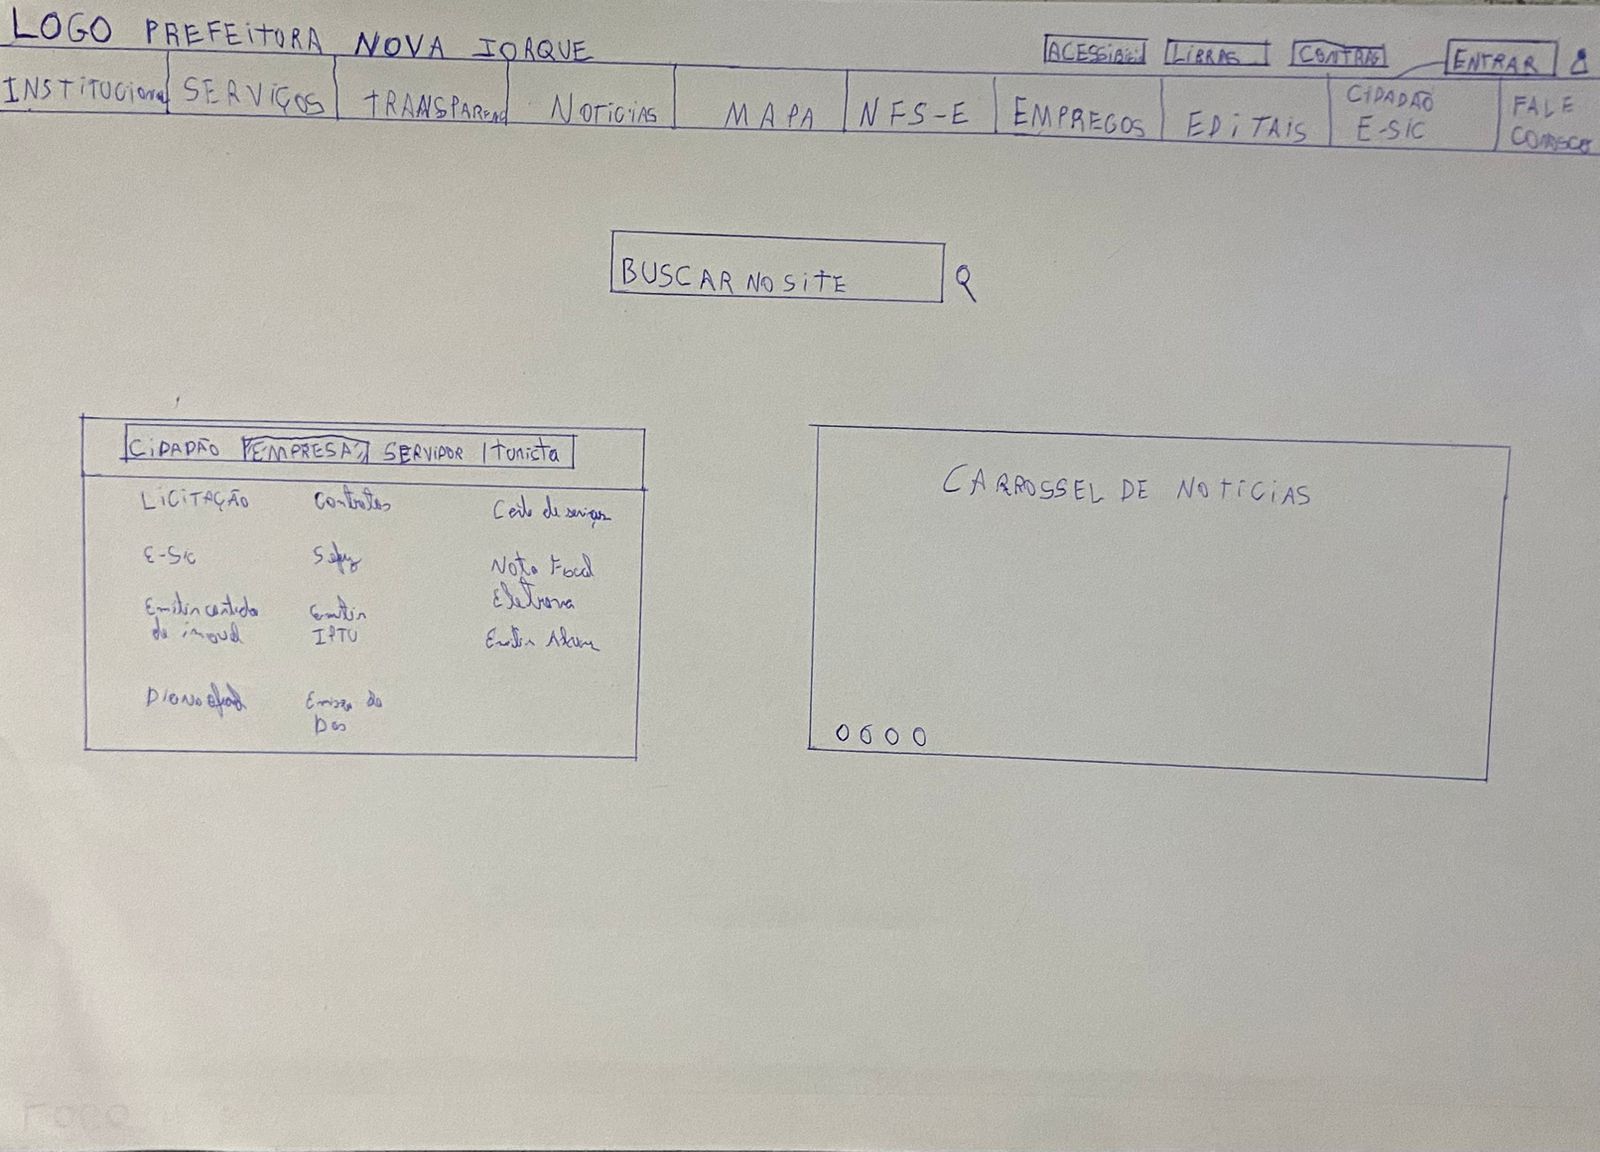 LOGO PREFEITURA NOVA IORQUE
ACESSIBILI LIBRAS CONTRAS ENTRAR
INSTITUCIONAL SERVIÇOS TRANSPARENC NOTICIAS MAPA NFS-E EMPREGOS EDITAIS CIDADÃO E-SIC FALE CONOSCO
BUSCAR NO SITE
CIDADÃO EMPRESA SERVIDOR turista
LICITAÇÃO Contratos Carta de serviços
E-SIC Sefaz Nota Fiscal
Eletronica
Emitir certidão Emitir
de imovel IPTU Emitir Alvara
Diario oficial Emissão de
Das
CARROSSEL DE NOTICIAS